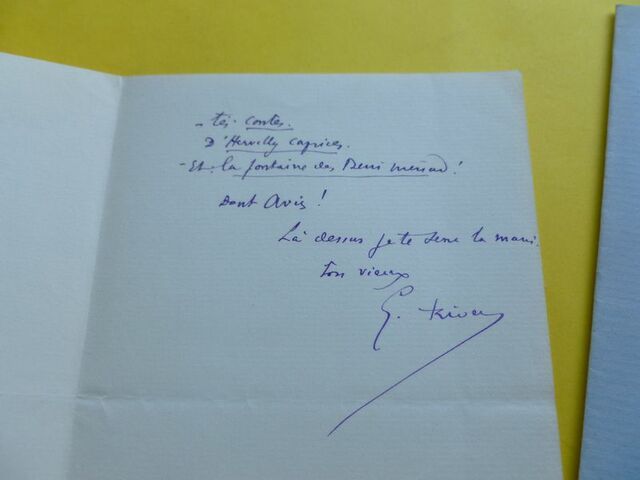 - tes contes.
D'Hervilly caprices.
- Et. la fontaine des Beni menad!
Dont Avis!
Là dessus je te serre la main.
ton vieux
G.